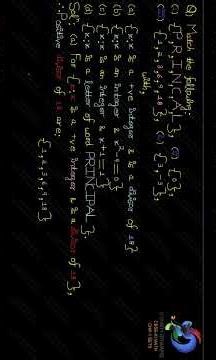 Q) Match the following:
(i) {P,R,I,N,C,A,L}; (ii) {0};
(iii) {1,2,3,6,9,18}; (iv) {3,-3}
with,
(a) {x:x is a +ve integer & is a divisor of 18}
(b) {x:x is an integer & x²-9=0}
(c) {x:x is an integer & x+1=1}
(d) {x:x is a letter of word PRINCIPAL}.
Solⁿ: (a) For {x:x is a +ve integer & is a divisor of 18},
∴ Positive divisor of 18 are,
{1,2,3,6,9,18}